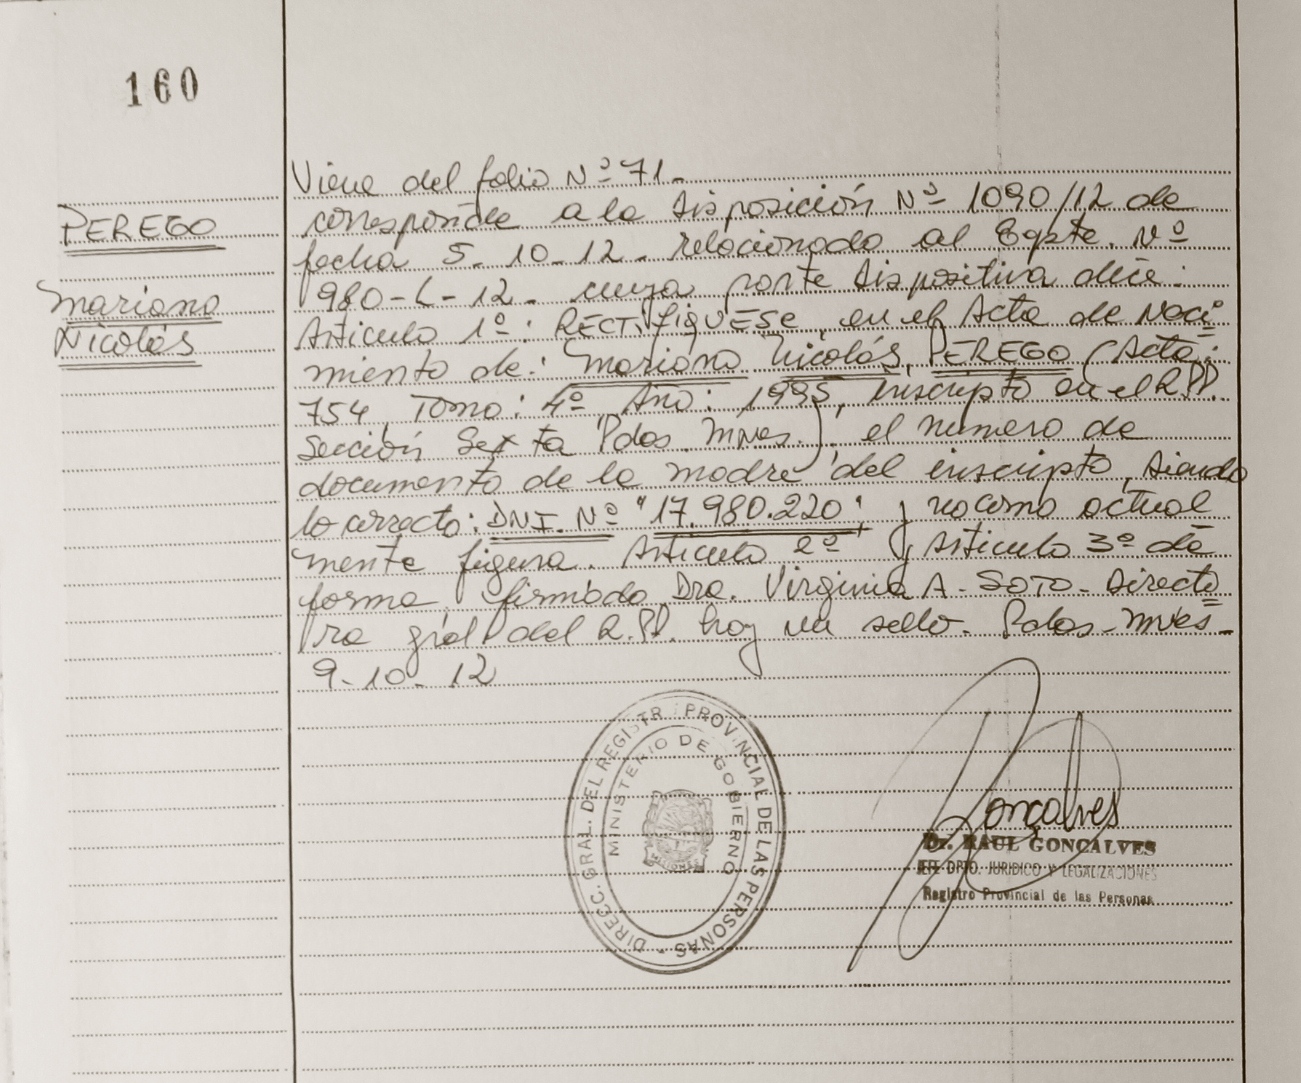 160
PEREGO
Mariano
Nicolás
Viene del folio Nº 71.-
corresponde a la disposición Nº 1090/12 de
fecha 5-10-12. relacionado al Expte. Nº
980-L-12- cuya parte dispositiva dice:
Artículo 1º: RECTIFIQUESE, en el Acta de Naci
miento de: Mariano Nicolás, PEREGO (Acta:
754, Tomo: 4º Año: 1995, inscripto en el R.PP.
Sección Sexta Pdas. Mnes.), el número de
documento de la madre del inscripto, siendo
lo correcto: DNI. Nº "17.980.220", y no como actual
mente figura. Artículo 2º y Artículo 3º de
forma. firmado Dra. Virginia A. SOTO- Directo
ra gral del R.PP. hay un sello. Pdas-Mnes-
9-10-12
DIRECC. GRAL. DEL REGISTR PROVINCIAL DE LAS PERSONAS
MINISTERIO DE GOBIERNO
MISIONES
Gonçalves
Dr. RAUL GONCALVES
JEFE DPTO. JURIDICO Y LEGALIZACIONES
Registro Provincial de las Personas